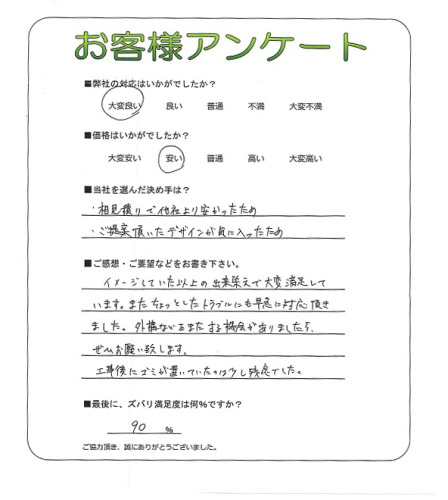 お客様アンケート
■弊社の対応はいかがでしたか?
大変良い 良い 普通 不満 大変不満
■価格はいかがでしたか?
大変安い 安い 普通 高い 大変高い
■当社を選んだ決め手は?
・相見積りで他社より安かったため
・ご提案頂いたデザインが気に入ったため
■ご感想・ご要望などをお書き下さい。
イメージしていた以上の出来栄えで大変満足して
います。またちょっとしたトラブルにも早急に対応頂き
ました。外構などをまたする機会がありましたら、
ぜひお願い致します。
工事後にゴミが置いていたのは少し残念でした。
■最後に、ズバリ満足度は何%ですか?
90 %
ご協力頂き、誠にありがとうございました。